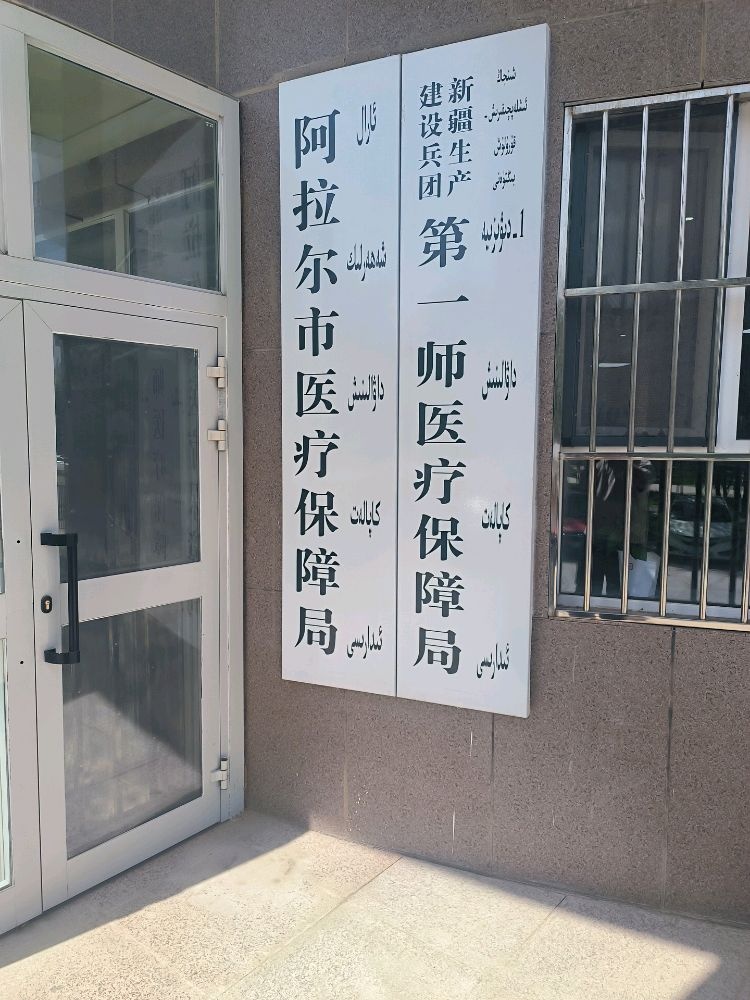 新疆生产
建设兵团
第一师医疗保障局
شىنجاڭ
ئىشلەپچىقىرىش-
قۇرۇلۇش
بىڭتۇەنى
1-دىۋىزىيە
داۋالىنىش
كاپالەت
ئىدارىسى
阿拉尔市医疗保障局
ئارال
شەھەرلىك
داۋالىنىش
كاپالەت
ئىدارىسى